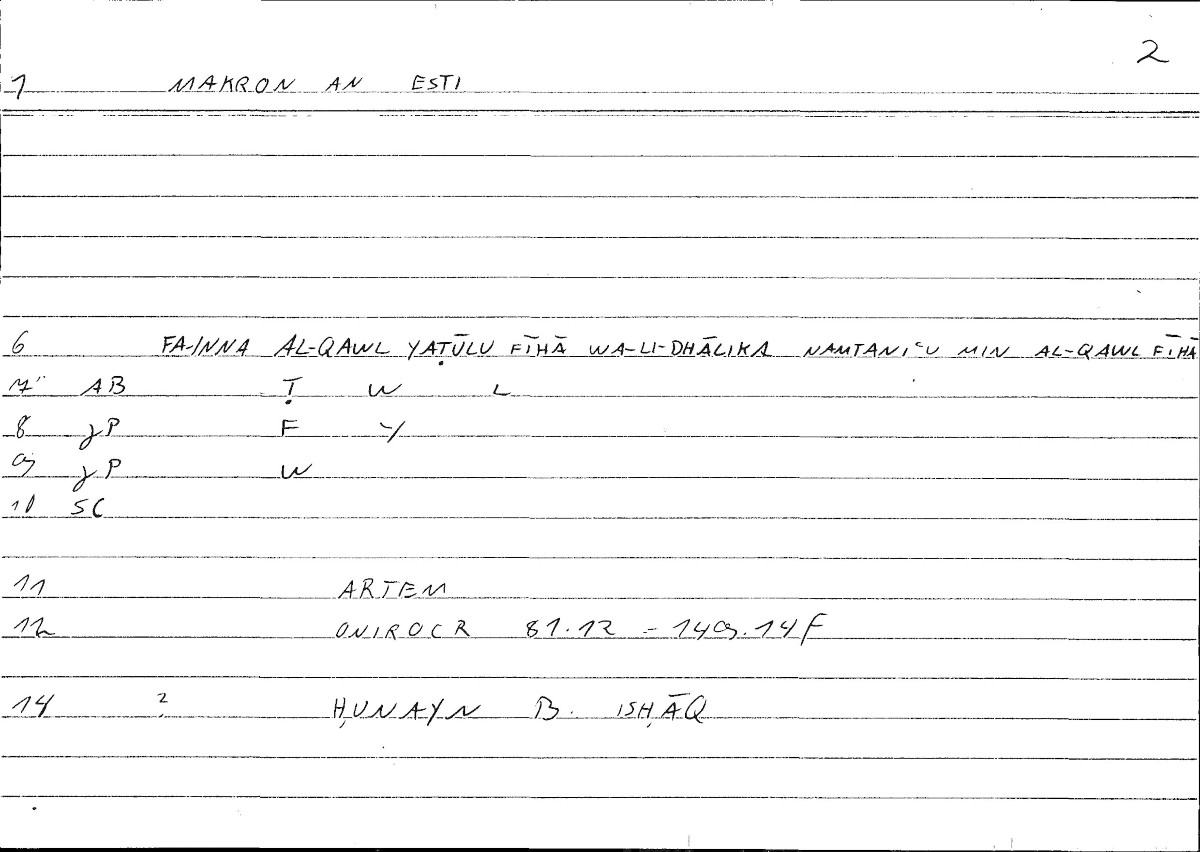 2
1 MAKRON AN ESTI
6 FA-INNA AL-QAWL YAṬŪLU FĪHĀ WA-LI-DHĀLIKA NAMTANIʿU MIN AL-QAWL FĪHĀ
7 AB Ṭ W L
8 γP F Y
9 γP W
10 SC
11 ARTEM
12 ONIROCR 81.12 - 149.14F
14 ? ḤUNAYN B. ISḤĀQ